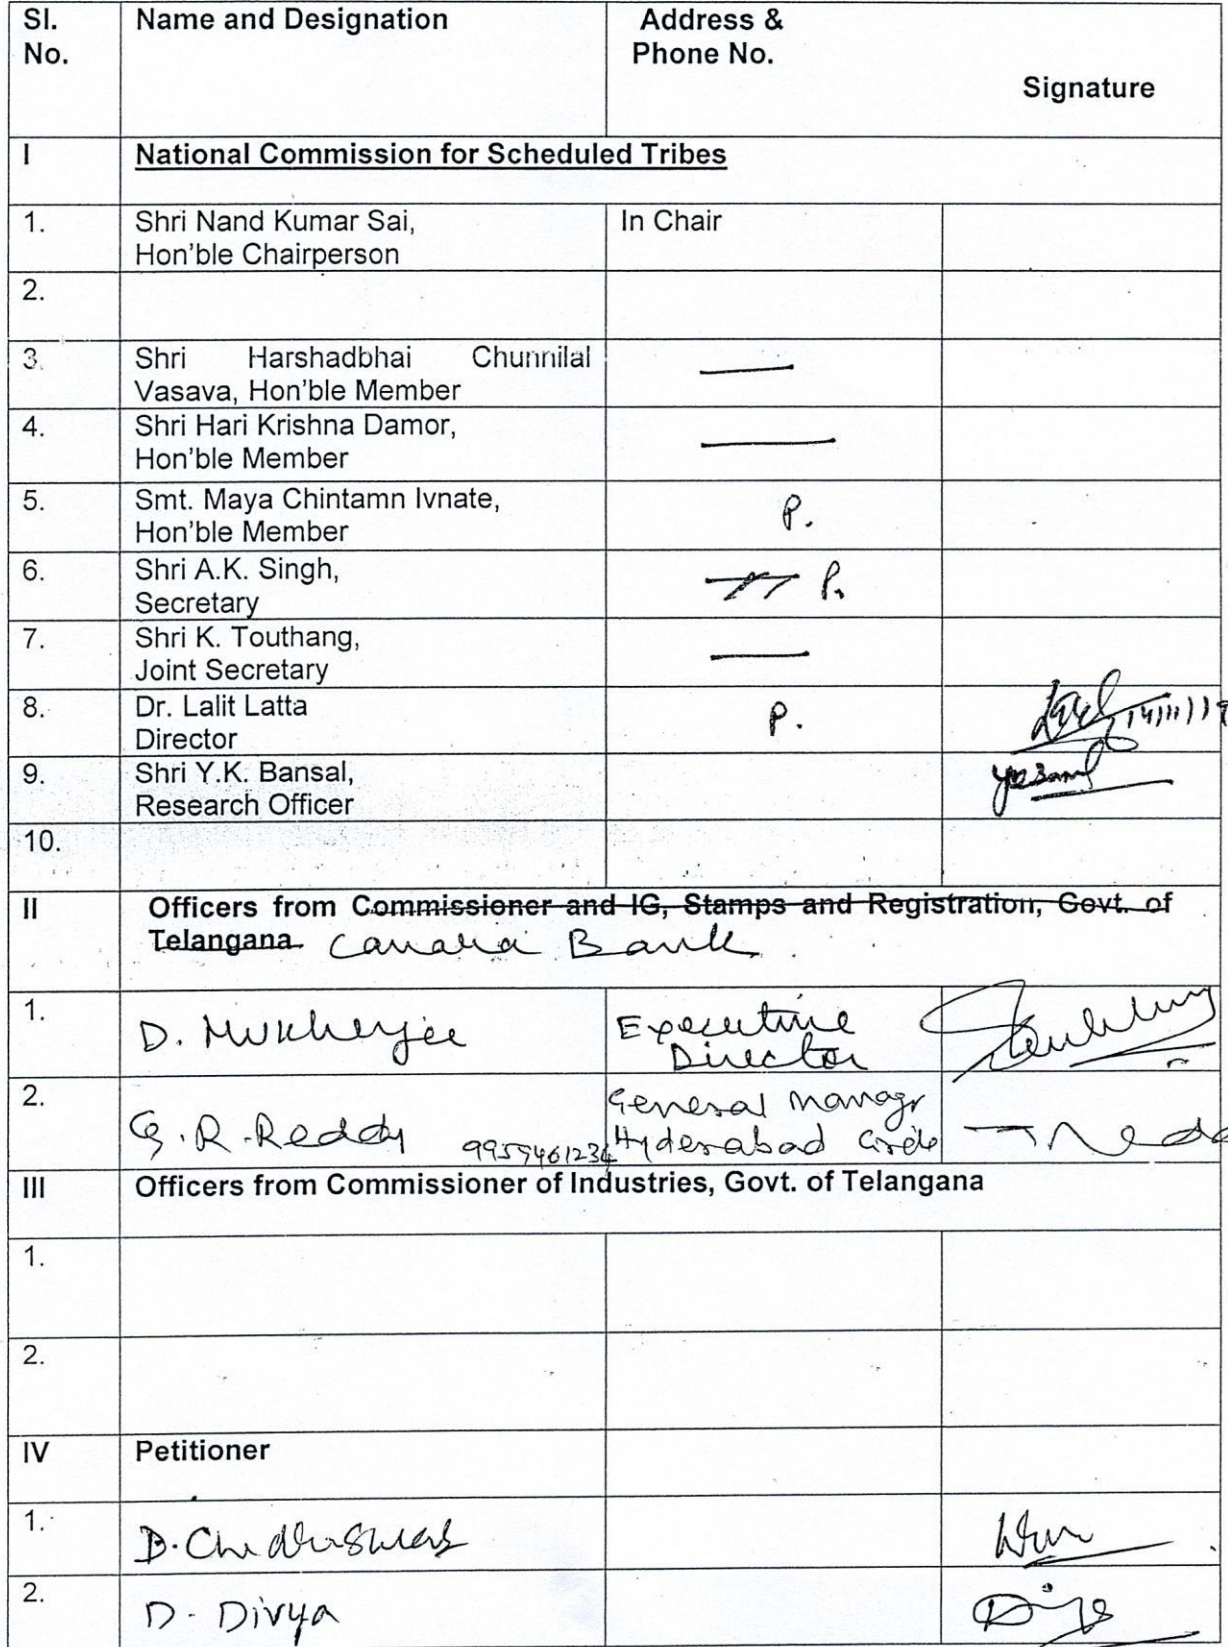 Sl.
No.
Name and Designation
Address &
Phone No.
Signature
I
National Commission for Scheduled Tribes
1.
Shri Nand Kumar Sai,
Hon'ble Chairperson
In Chair
2.
3.
Shri Harshadbhai Chunnilal
Vasava, Hon'ble Member
4.
Shri Hari Krishna Damor,
Hon'ble Member
5.
Smt. Maya Chintamn Ivnate,
Hon'ble Member
P.
6.
Shri A.K. Singh,
Secretary
P.
7.
Shri K. Touthang,
Joint Secretary
8.
Dr. Lalit Latta
Director
P.
9.
Shri Y.K. Bansal,
Research Officer
10.
II
Officers from Commissioner and IG, Stamps and Registration, Govt. of
Telangana. Canara Bank
1.
D. Mukherjee
Executive
Director
2.
G.R.Reddy 9959461234
General Managr
Hyderabad Circle
III
Officers from Commissioner of Industries, Govt. of Telangana
1.
2.
IV
Petitioner
1.
2.
D. Divya